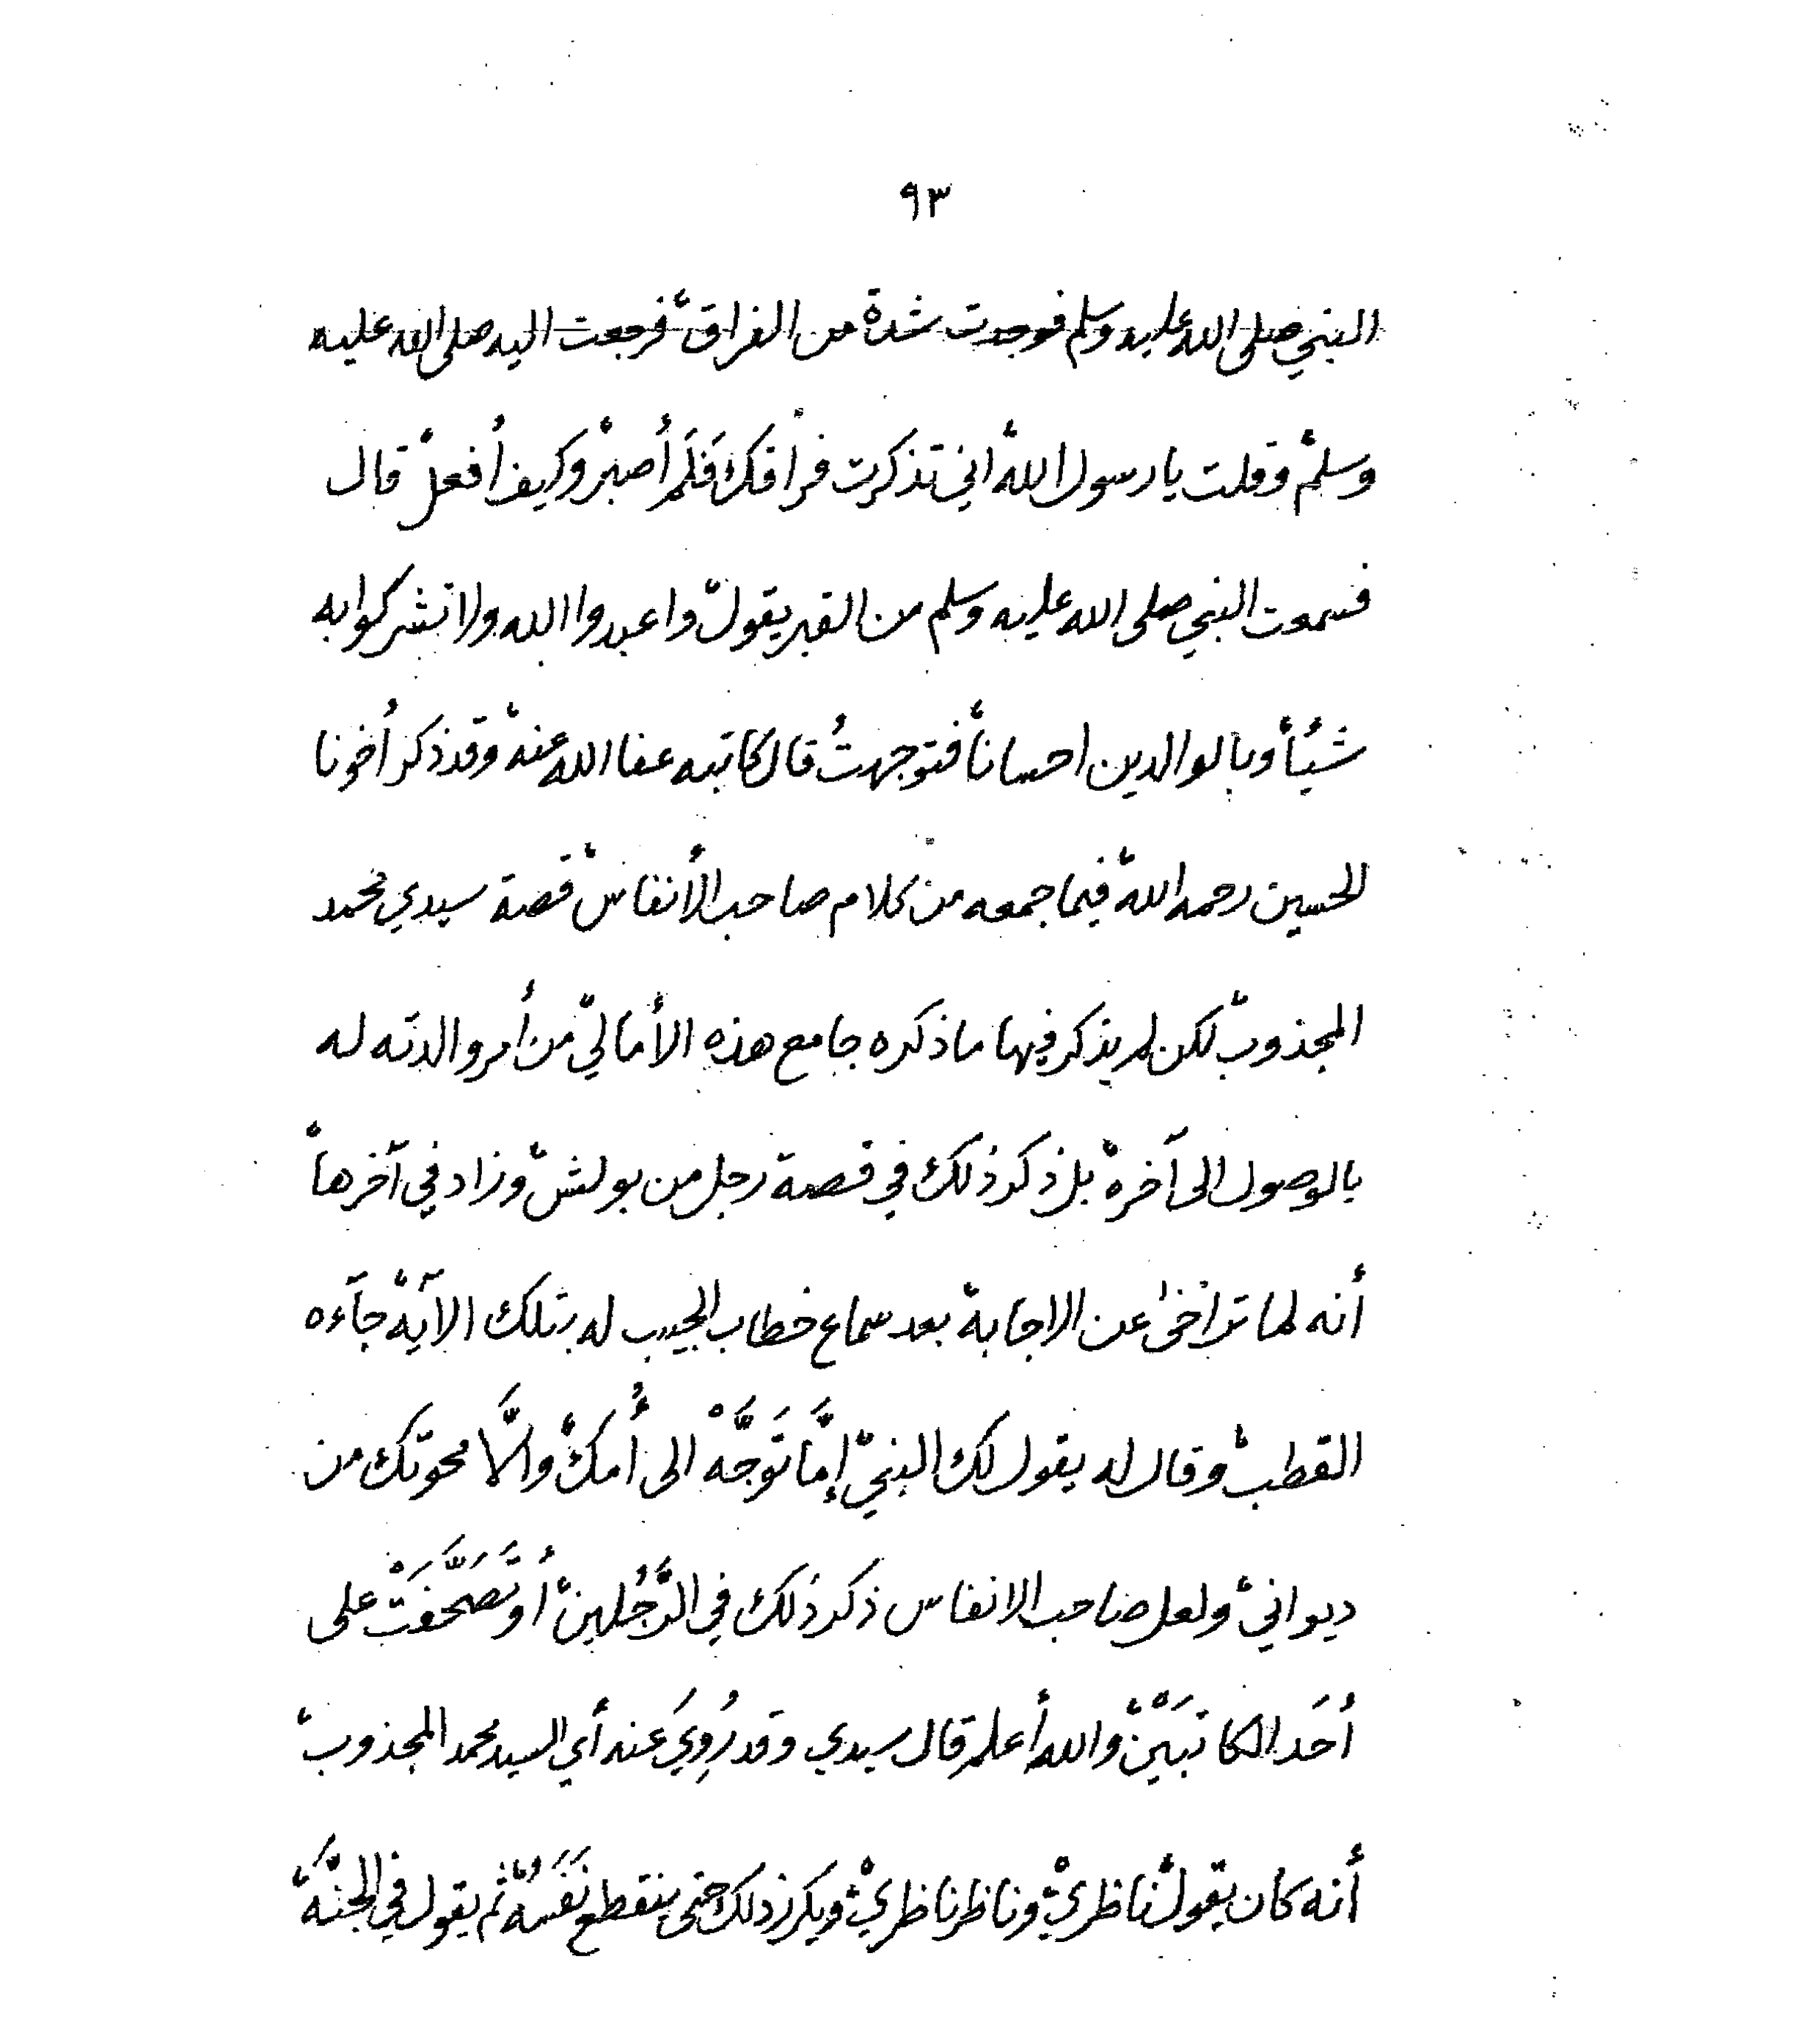 ٩٣
النبي صلى الله عليه وسلم فوجدت شدة من الفراق، فرجعت اليه صلى الله عليه
وسلم، وقلت يا رسول الله، اني تذكرت فراقك فَلَم أصبر، وكيف أفعل، قال
فسمعت النبي صلى الله عليه وسلم من القبر يقول، واعبدوا الله ولا تشركوا به
شيئاً وبالوالدين احساناً، فتوجهتُ قال كاتبه عفا الله عنه، وقد ذكر أخونا
الحسين رحمه الله، فيما جمعه من كلام صاحب الأنفاس، قصة سيدي محمد
المجذوب، لكن لم يذكر فيها ما ذكره جامع هذه الأمالي، من أمر والدته له
بالوصول الى آخره، بل ذكر ذلك في قصة رجل من بولش، وزاد في آخرها،
أنه لما تراخى عن الاجابة بعد سماع خطاب الحبيب له بتلك الآية، جآءه
القطب، وقال له يقول لك النبيّ، إمَّا تَوَجَّهْ الى أُمك، والَّا محوتك من
ديواني، ولعل صاحب الانفاس ذكر ذلك في الرَّجُلين، أو تَصَحَّفَتْ على
أحَد الكاتبَيْن، والله أعلم قال سيدي وقد رُوِيَ عنه أي السيد محمد المجذوب،
أنه كان يقول، ناظري، وناظر ناظري، ويكرر ذلك حتى ينقطع نَفَسُه، ثم يقول في الجنَّة،